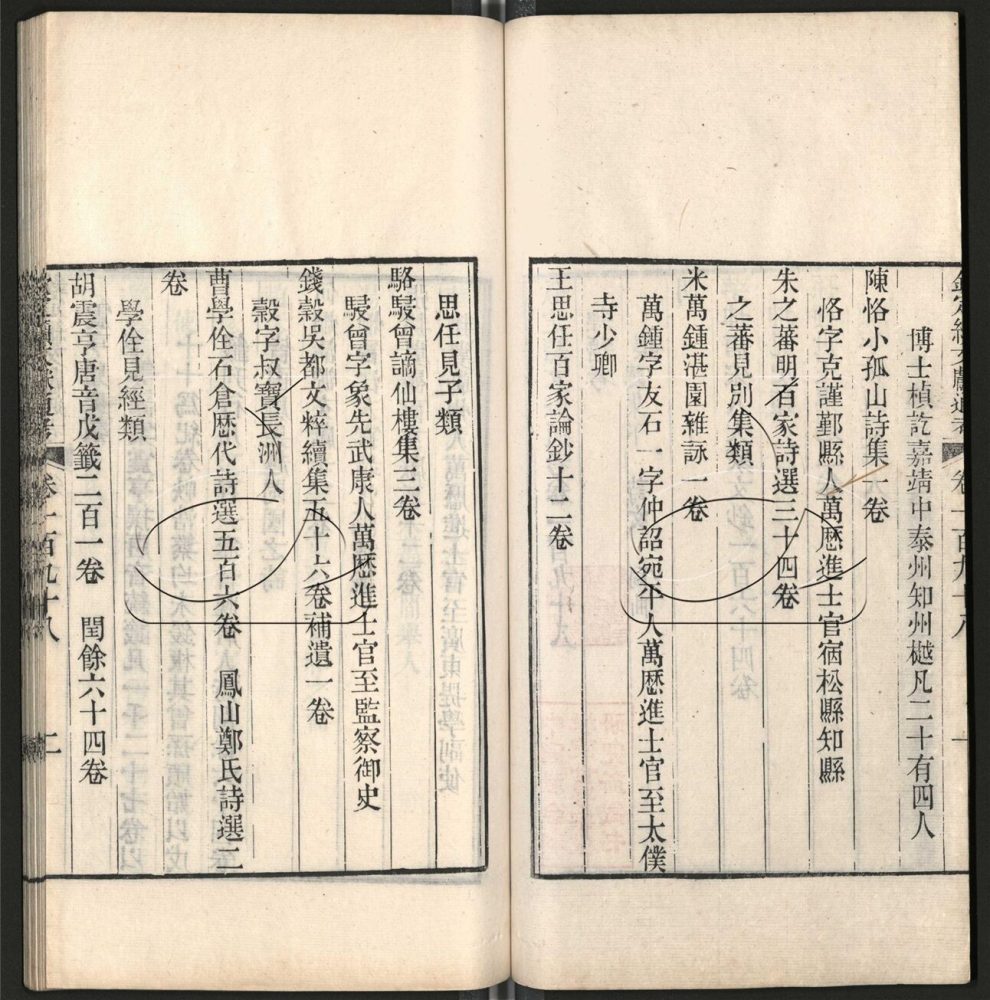 博士楨訖嘉靖中泰州知州樾凡二十有四人
陳恪小孤山詩集一卷
恪字克謹鄞縣人萬歷進士官宿松縣知縣
朱之蕃明百家詩選三十四卷
之蕃見別集類
米萬鍾湛園雜詠一卷
萬鍾字友石一字仲詔宛平人萬歷進士官至太僕
寺少卿
王思任百家論鈔十二卷
思任見子類
駱駸曾謫仙樓集三卷
駸曾字象先武康人萬歷進士官至監察御史
錢穀吳都文粹續集五十六卷補遺一卷
穀字叔寶長洲人
曹學佺石倉歷代詩選五百六卷 鳳山鄭氏詩選二
卷
學佺見經類
胡震亨唐音戊籤二百一卷 閏餘六十四卷
卷一百九十八 二